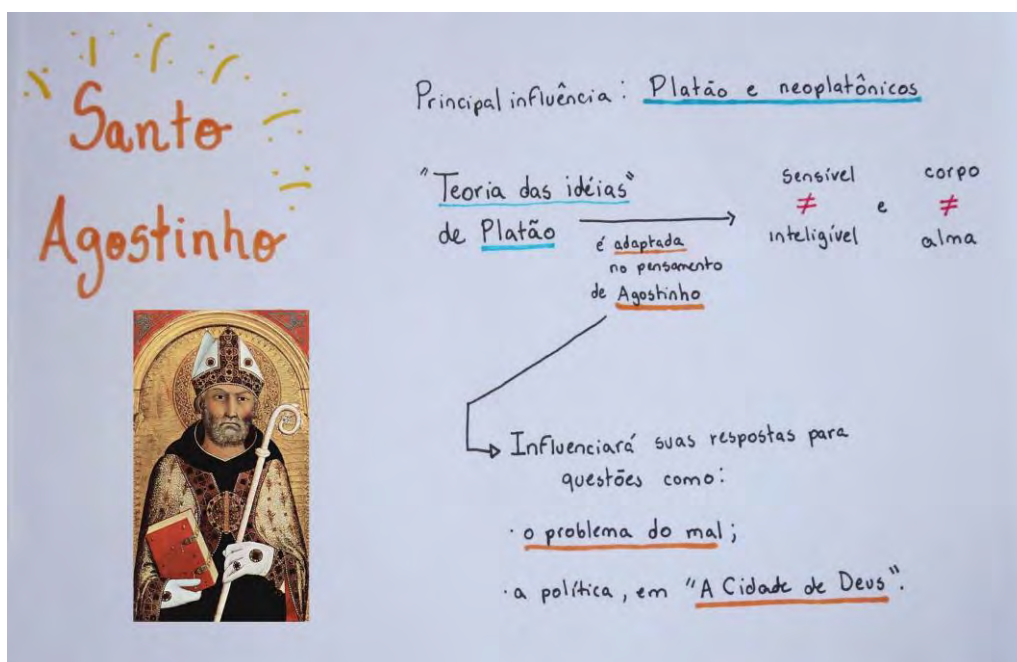 Santo
Agostinho
Principal influência: Platão e neoplatônicos
"Teoria das idéias"
de Platão
é adaptada
no pensamento
de Agostinho
sensível
≠
inteligível
e
corpo
≠
alma
Influenciará suas respostas para
questões como:
· o problema do mal;
· a política, em "A Cidade de Deus".